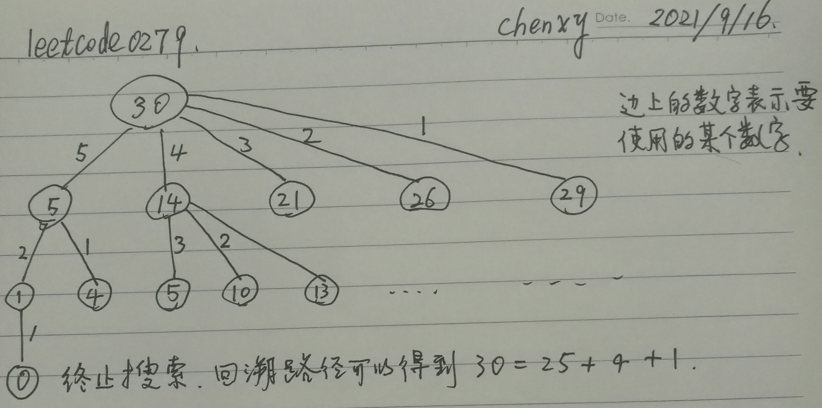 leetcode0279.
chenxy Date. 2021/9/16.
边上的数字表示要
使用的某个数字.
30
5 4 3 2 1
5 14 21 26 29
2 1 3 2
1 4 5 10 13 .... ----
1
0 终止搜索. 回溯路径可以得到 30 = 25 + 4 + 1.